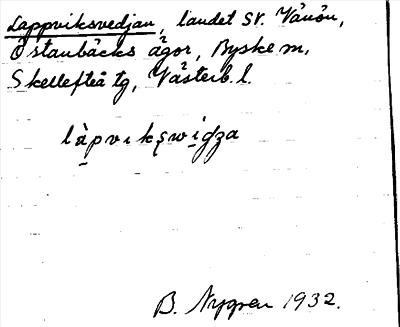 Lappviksvedjan, landet SV. Vånön,
Östanbäcks ägor, Byske sn,
Skellefteå tg, Västerb. l.
làpvıkșwịdʒa
B. Nygren 1932.